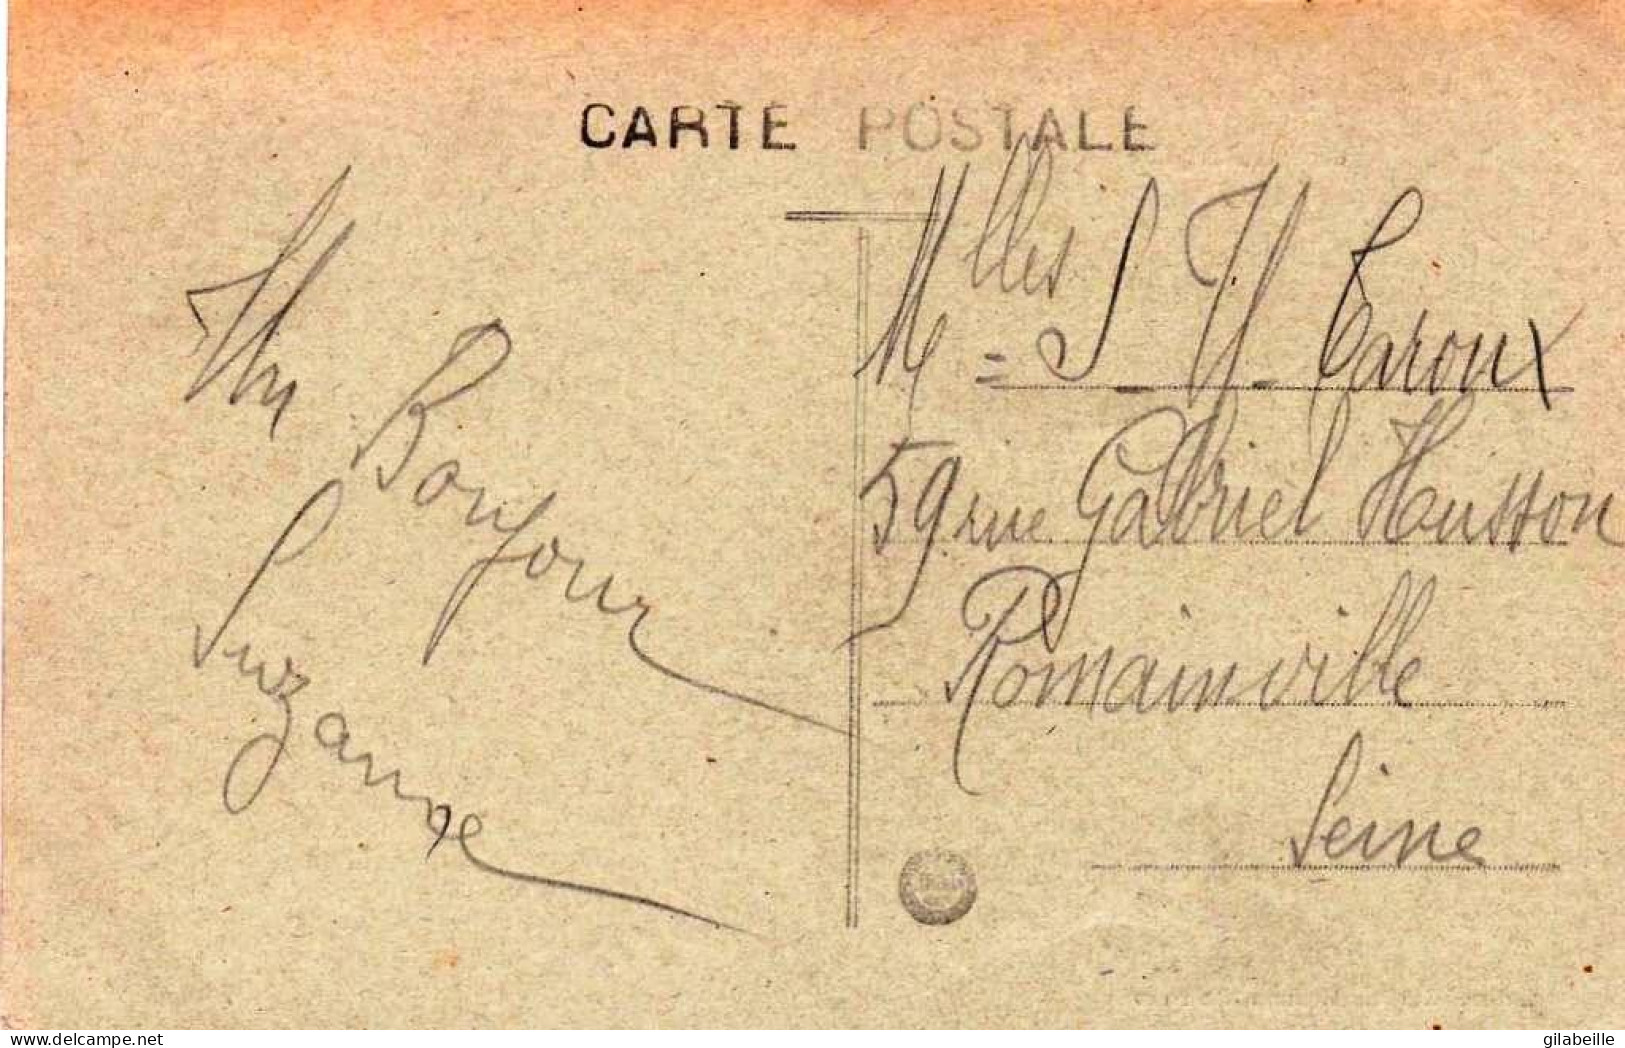 CARTE POSTALE
Un
Bonjour
Suzanne
Mlles = S. Y. Caroux
59 rue Gabriel Husson
Romainville
Seine
delcampe.net
gilabeille